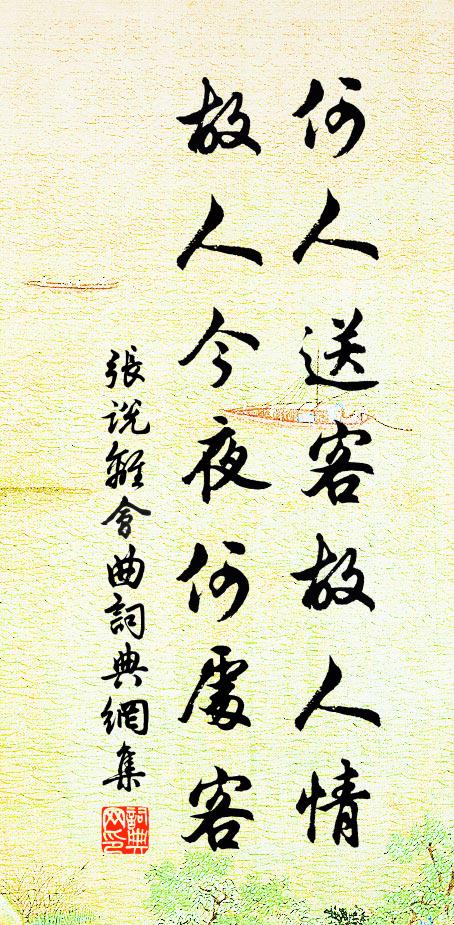 何人送客故人情
故人今夜何處客
張說離會曲詞典網集
詞典網印